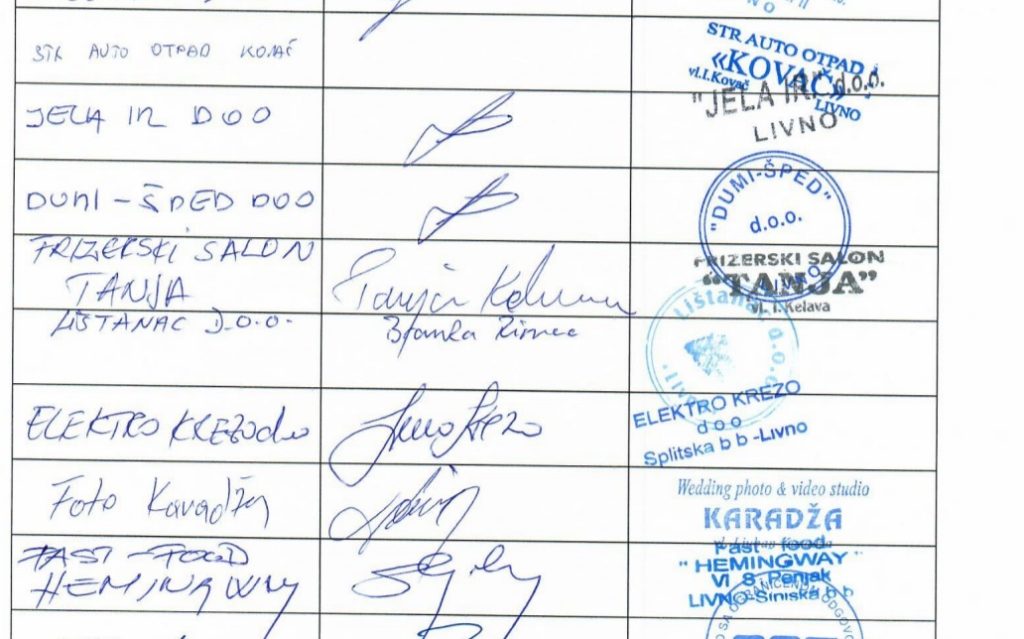 STR AUTO OTPAD KOVAČ
STR AUTO OTPAD
«KOVAČ»
vl.I.Kovač
LIVNO
JELA IR DOO
"JELA IR" d.o.o.
LIVNO
DUMI - ŠPED DOO
"DUMI-ŠPED"
d.o.o.
FRIZERSKI SALON
TANJA
FRIZERSKI SALON
"TANJA"
vl. T. Kelava
LIŠTANAC D.O.O.
Lištanac d.o.o.
ELEKTRO KREZO doo
ELEKTRO KREZO
d o o
Splitska b b -Livno
Foto Karadža
Wedding photo & video studio
KARADŽA
FAST - FOOD
HEMINGWAY
Fast food
"HEMINGWAY"
Vl S Penjak
LIVNO-Siniska b b